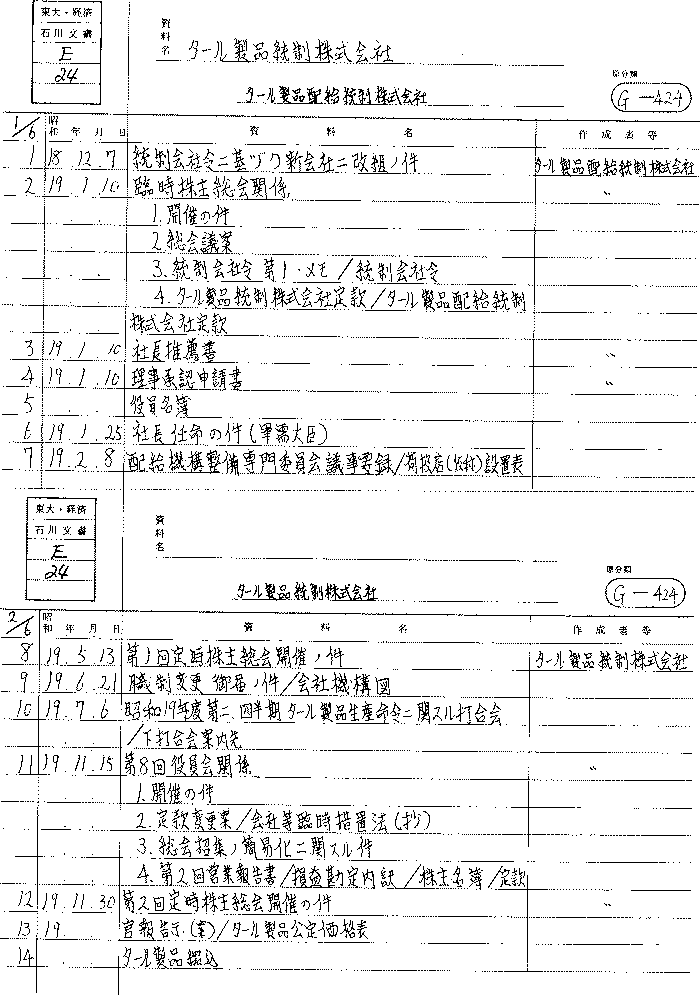 東大・経済
石川文書
E
24
資料名
タール製品統制株式会社
タール製品配給統制株式会社
原分類
G-424
1/6 昭和 年 月 日 資料名 作成者等
1 18.12.7 統制会社令ニ基ヅク新会社ニ改組ノ件 タール製品配給統制株式会社
2 19.1.10 臨時株主総会関係 〃
1.開催の件
2.総会議案
3.統制会社令第1・メモ/統制会社令
4.タール製品統制株式会社定款/タール製品配給統制
株式会社定款
3 19.1.10 社長推薦書 〃
4 19.1.10 理事承認申請書 〃
5 役員名簿
6 19.1.25 社長任命の件(軍需大臣)
7 19.2.8 配給機構整備専門委員会議事要録/荷扱店設置表
東大・経済
石川文書
E
24
資料名
タール製品統制株式会社
原分類
G-424
2/6 昭和 年 月 日 資料名 作成者等
8 19.5.13 第1回定時株主総会開催ノ件 タール製品統制株式会社
9 19.6.21 職制変更御届ノ件/会社機構図
10 19.7.6 昭和19年度第二.四半期タール製品生産命令ニ関スル打合会
/下打合会案内先
11 19.11.15 第8回役員会関係 〃
1.開催の件
2.定款変更案/会社等臨時措置法(抄)
3.総会招集ノ簡易化ニ関スル件
4.第2回営業報告書/損益勘定内訳/株主名簿/定款
12 19.11.30 第2回定時株主総会開催の件 〃
13 19. 官報告示(案)/タール製品公定価格表
14 タール製品